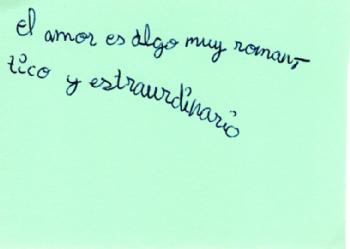 el amor es algo muy roman-
tico y estraurdinario